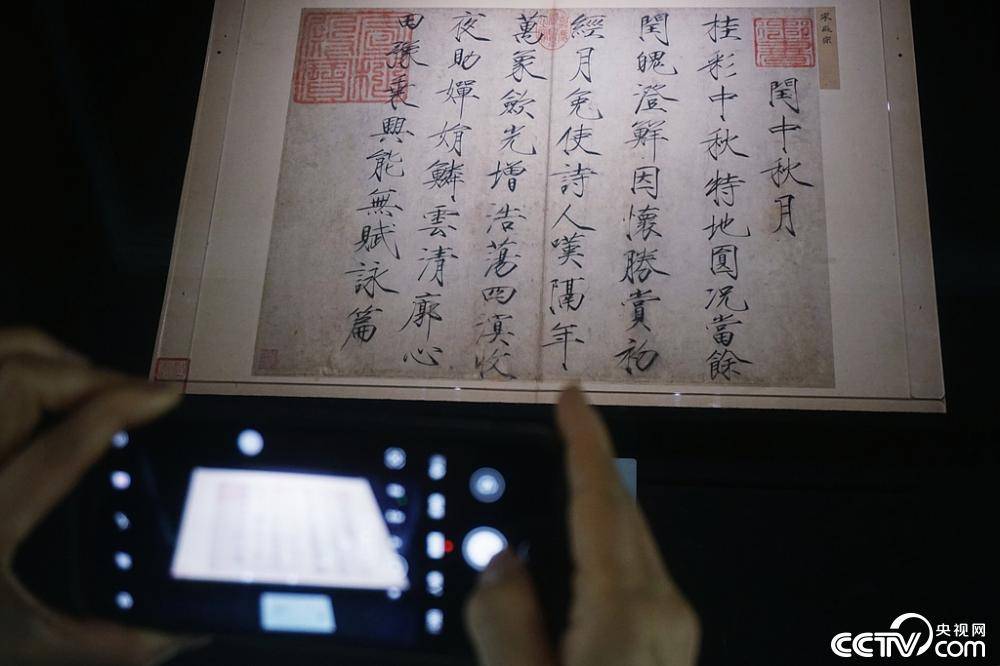 宋徽宗
御書
閏中秋月
桂彩中秋特地圓況當餘
閏魄澄鮮因懷勝賞初
經月免使詩人嘆隔年
萬象斂光增浩蕩四溟收
夜助嬋娟鱗雲清廓心
田豫乘興能無賦詠篇
央视网
CCTV.com